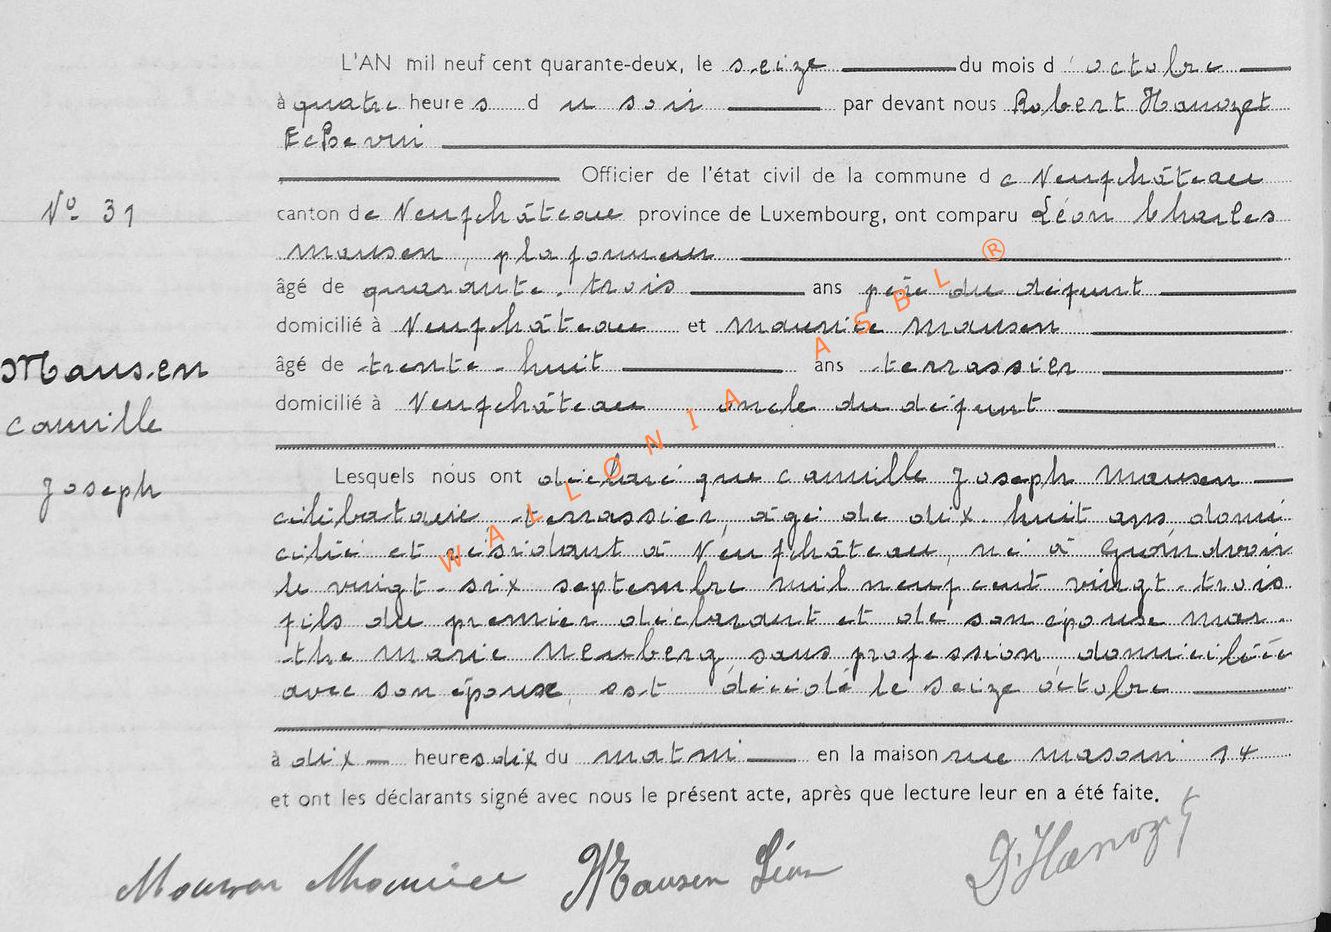 L'AN mil neuf cent quarante-deux, le seize du mois d'octobre
à quatre heures du soir par devant nous Robert Hanozet
Echevin
Officier de l'état civil de la commune de Neufchâteau
N° 31
canton de Neufchâteau province de Luxembourg, ont comparu Léon Charles
Mausen, plafonneur
âgé de quarante-trois ans père du défunt
domicilié à Neufchâteau et Maurice Mausen
Mausen
âgé de trente-huit ans terrassier
Camille
domicilié à Neufchâteau oncle du défunt
Joseph
Lesquels nous ont déclaré que Camille Joseph Mausen
célibataire terrassier, âgé de dix-huit ans domi
cilié et résidant à Neufchâteau, né à
le vingt-six septembre mil neuf cent vingt-trois
fils du premier déclarant et de son épouse Mar-
the Marie Neuberg, sans profession, domiciliée
avec son époux, est décédé le seize octobre
à dix heures dix du matin en la maison rue 14
et ont les déclarants signé avec nous le présent acte, après que lecture leur en a été faite.
Mausen Maurice Mausen Léon Dr Hanozet
WALLONIA ASBL ®